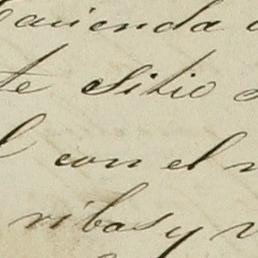 hacienda
te sitio
l con el
ribas y